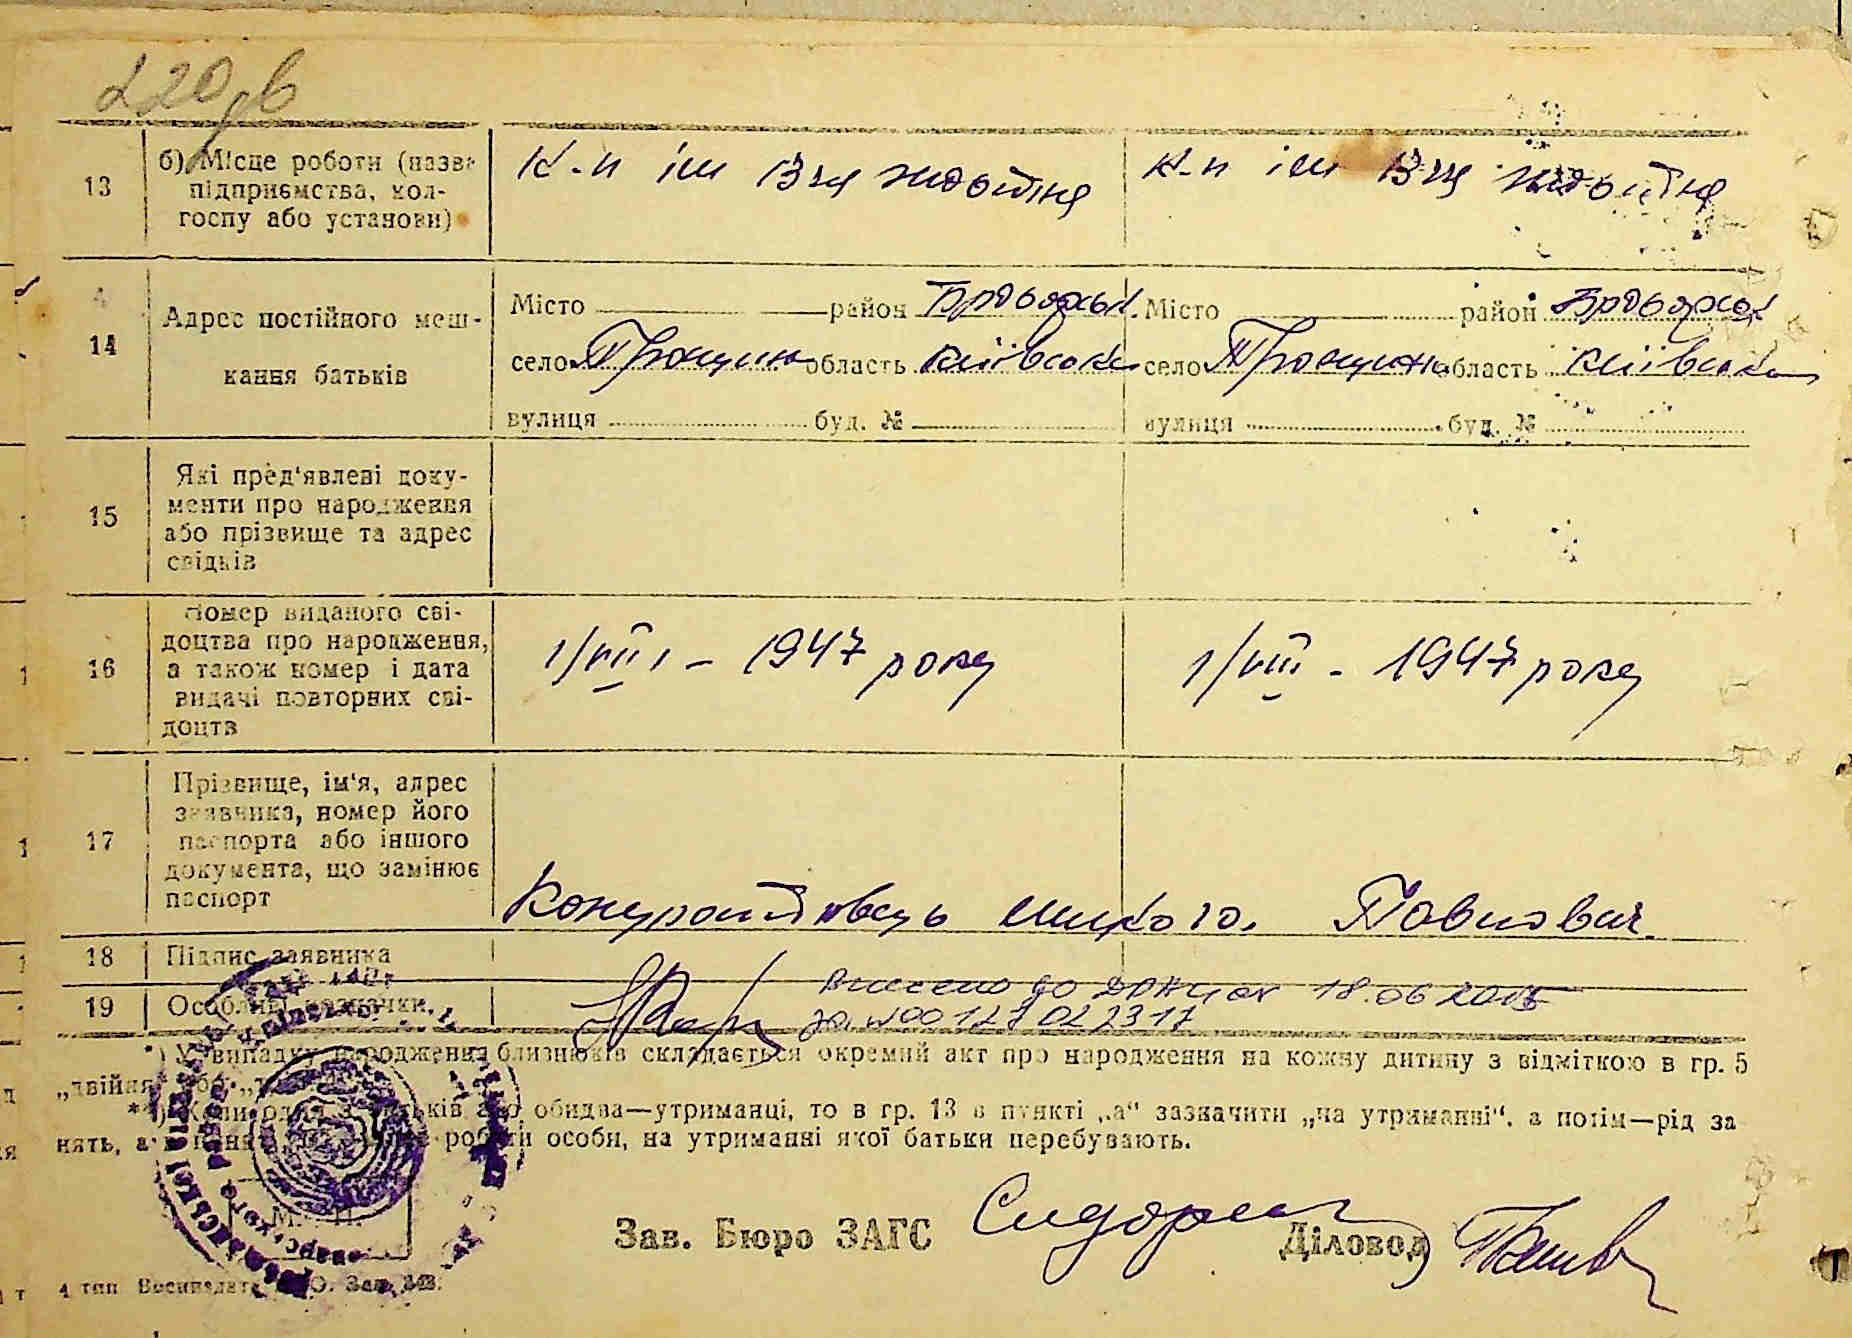 13 б) Місце роботи (назва
підприємства, кол-
госпу або установи)
К-п ім 13 чя жовтня К-п ім 13 чя жовтня
14 Адрес постійного меш-
кання батьків
Місто район Місто район
село Трощин область Київська село Трощин область Київська
вулиця буд. № вулиця буд. №
15 Які пред'явлені доку-
менти про народження
або прізвище та адрес
свідків
16 Номер виданого сві-
доцтва про народження,
а також номер і дата
видачі повторних сві-
доцтв
1/VIII - 1947 року 1/VIII - 1947 року
17 Прізвище, ім'я, адрес
заявника, номер його
паспорта або іншого
документа, що замінює
паспорт
Микола Павлович
18 Підпис заявника
19 Особливі
Внесено до ДРАЦСГ 18.06
за №00127022317
*) У випадку народження близнюків складається окремий акт про народження на кожну дитину з відміткою в гр. 5
„двійня"
обидва—утриманці, то в гр. 13 в пункті „а" зазначити „на утриманні", а потім—рід за
нять, а роботи особи, на утриманні якої батьки перебувають.
М. П.
Зав. Бюро ЗАГС Діловод
4 тип Зак. 343.